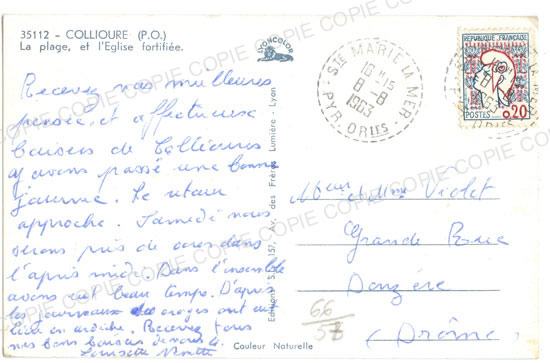 35112 - COLLIOURE (P.O.)
La plage, et l'Eglise fortifiée.
LYONCOLOR
STE MARIE LA MER
16 H 15
8 - 8
1963
PYR. ORLES
REPUBLIQUE FRANÇAISE
POSTES 0,20
Recevez nos meilleures
pensée, et affectueuse
baisers de Collioures
ay avons passé une bonne
journée. Le retour
approche. Samedi nous
serons près de dans
l'après midi. Dans l'ensemble
avons eut beau temps. D'après
les journaux des orages ont eu
lieu en ardèche. Recevez tous
nos bons baisers de nous 4.
Editions S.L. 157, Av. des Frères Lumière - Lyon
Mr et Mme Violet
Grande Rue
Donzère
(Drôme)
66
Couleur Naturelle
COPIE COPIE COPIE COPIE COPIE